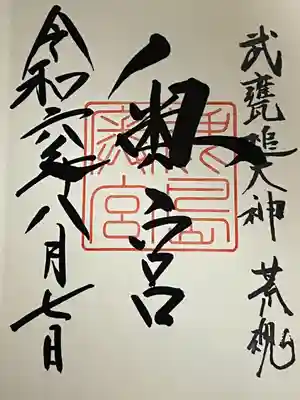 武甕槌大神 荒魂
奥宮
令和六年八月七日
鹿島
奥宮